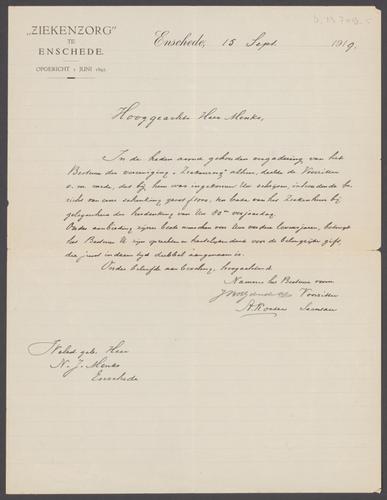 D. 13 743. 5
„ZIEKENZORG”
TE
ENSCHEDE.
OPGERICHT 1 JUNI 1895.
Enschede, 15 Sept. 1919.
Hooggeachte Heer Menko,
In de heden avond gehouden vergadering van het
Bestuur der vereeniging „Ziekenzorg" alhier, deelde de Voorzitter
o.m. mede, dat bij hem was ingekomen Uw schrijven, inhoudende be-
richt van een schenking groot f 1000, ten bate van het Ziekenhuis bij
gelegenheid der herdenking van Uw 80sten verjaardag.
Onder aanbieding zijner beste wenschen voor Uw verdere levensjaren, betuigt
het Bestuur U zijn oprechten en hartelijken dank voor de belangrijke gift,
die juist in dezen tijd dubbel aangenaam is.
Onder beleefde aanbeveling, hoogachtend
Namens het Bestuur voorn.
Voorzitter
A. Koster Secretaris
Weled. geb. Heer
N. J. Menko
Enschede